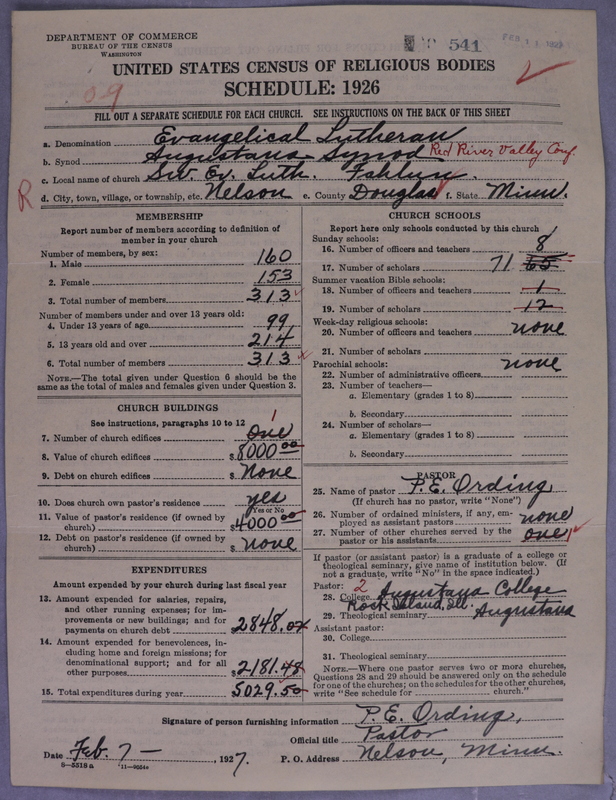 DEPARTMENT OF COMMERCE
BUREAU OF THE CENSUS
WASHINGTON
541
FEB 11 1927
UNITED STATES CENSUS OF RELIGIOUS BODIES
SCHEDULE: 1926
09
FILL OUT A SEPARATE SCHEDULE FOR EACH CHURCH. SEE INSTRUCTIONS ON THE BACK OF THIS SHEET
a. Denomination Evangelical Lutheran
b. Synod Augustana Synod Red River Valley Conf.
c. Local name of church Sw. Ev. Luth. Fahlun.
R d. City, town, village, or township, etc. Nelson e. County Douglas f. State Minn.
MEMBERSHIP
Report number of members according to definition of
member in your church
Number of members, by sex:
1. Male 160
2. Female 153
3. Total number of members 313
Number of members under and over 13 years old:
4. Under 13 years of age 99
5. 13 years old and over 214
6. Total number of members 313
NOTE.—The total given under Question 6 should be the
same as the total of males and females given under Question 3.
CHURCH BUILDINGS
See instructions, paragraphs 10 to 12
1
7. Number of church edifices one
8. Value of church edifices $8000 00
9. Debt on church edifices $ None
10. Does church own pastor's residence yes
Yes or No
11. Value of pastor's residence (if owned by
church) $4000 00
12. Debt on pastor's residence (if owned by
church) $ none
EXPENDITURES
Amount expended by your church during last fiscal year
13. Amount expended for salaries, repairs,
and other running expenses; for im-
provements or new buildings; and for
payments on church debt $2848.04
14. Amount expended for benevolences, in-
cluding home and foreign missions; for
denominational support; and for all
other purposes $2181.48
15. Total expenditures during year $5029.50
CHURCH SCHOOLS
Report here only schools conducted by this church
Sunday schools:
16. Number of officers and teachers 8
17. Number of scholars 71 65
Summer vacation Bible schools:
18. Number of officers and teachers 1
19. Number of scholars 12
Week-day religious schools:
20. Number of officers and teachers none
21. Number of scholars
Parochial schools: none
22. Number of administrative officers
23. Number of teachers—
a. Elementary (grades 1 to 8)
b. Secondary
24. Number of scholars—
a. Elementary (grades 1 to 8)
b. Secondary
PASTOR
25. Name of pastor P. E. Ording
(If church has no pastor, write "None")
26. Number of ordained ministers, if any, em-
ployed as assistant pastors none
27. Number of other churches served by the
pastor or his assistants one
If pastor (or assistant pastor) is a graduate of a college or
theological seminary, give name of institution below. (If
not a graduate, write "No" in the space indicated.)
Pastor: 2
28. College Augustana College
Rock Island, Ill.
29. Theological seminary Augustana
Assistant pastor:
30. College
31. Theological seminary
NOTE.—Where one pastor serves two or more churches,
Questions 28 and 29 should be answered only on the schedule
for one of the churches; on the schedules for the other churches,
write "See schedule for church."
Signature of person furnishing information P. E. Ording,
Official title Pastor
Date Feb. 7 — , 1927. P. O. Address Nelson, Minn.
8—5318 a